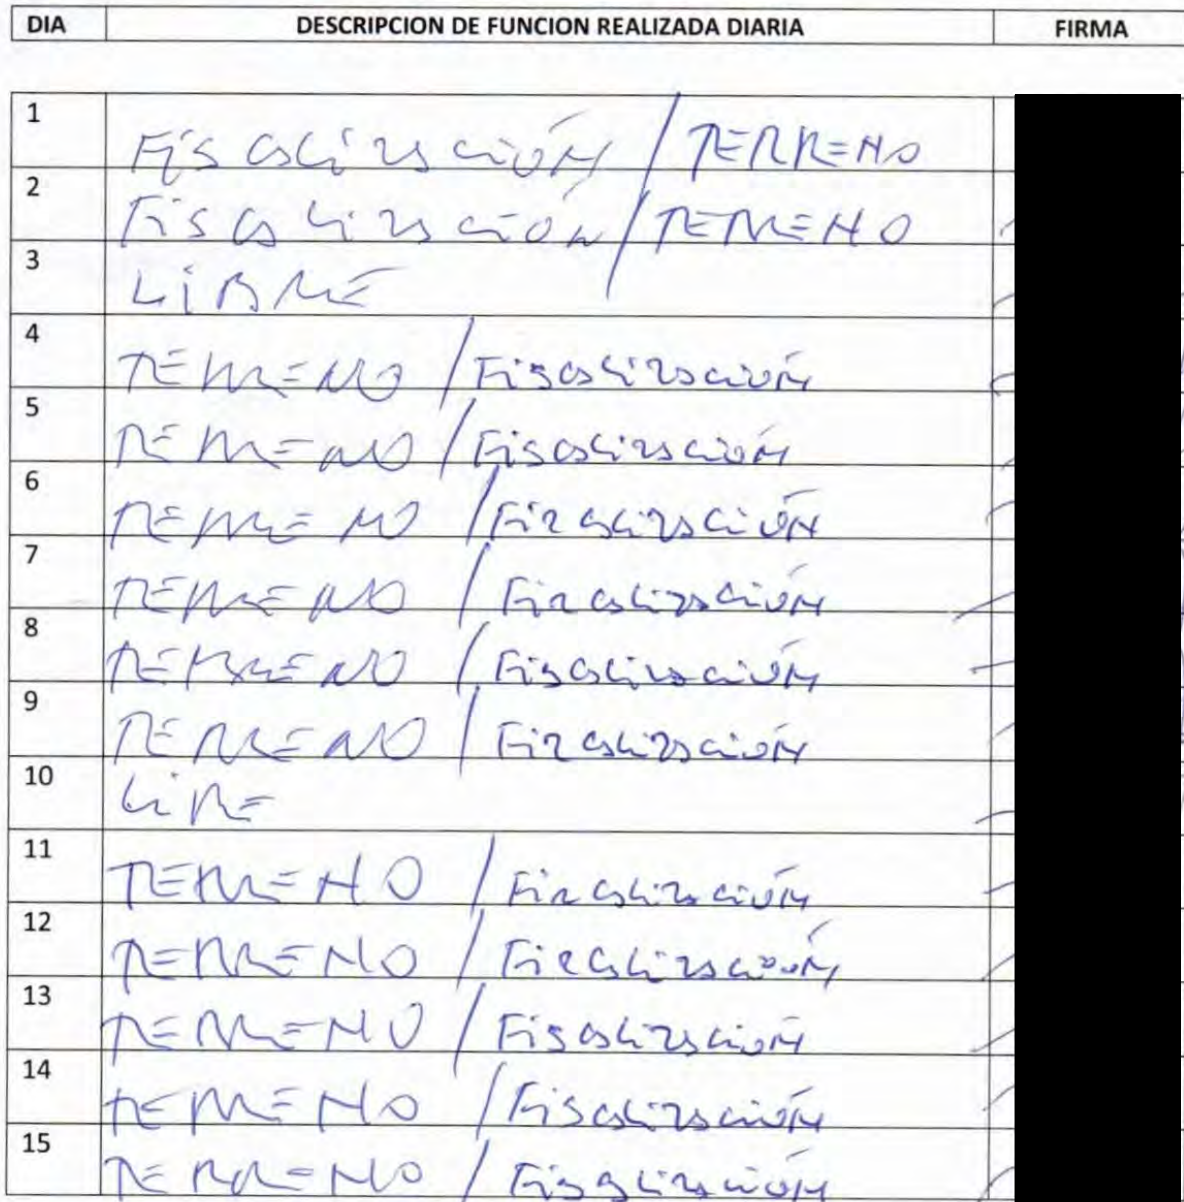 DIA DESCRIPCION DE FUNCION REALIZADA DIARIA FIRMA
1 Fiscalización / TERRENO
2 Fiscalización / TERRENO
3 LIBRE
4 TERRENO / Fiscalización
5 TERRENO / Fiscalización
6 TERRENO / Fiscalización
7 TERRENO / Fiscalización
8 TERRENO / Fiscalización
9 TERRENO / Fiscalización
10 LIBRE
11 TERRENO / Fiscalización
12 TERRENO / Fiscalización
13 TERRENO / Fiscalización
14 TERRENO / Fiscalización
15 TERRENO / Fiscalización